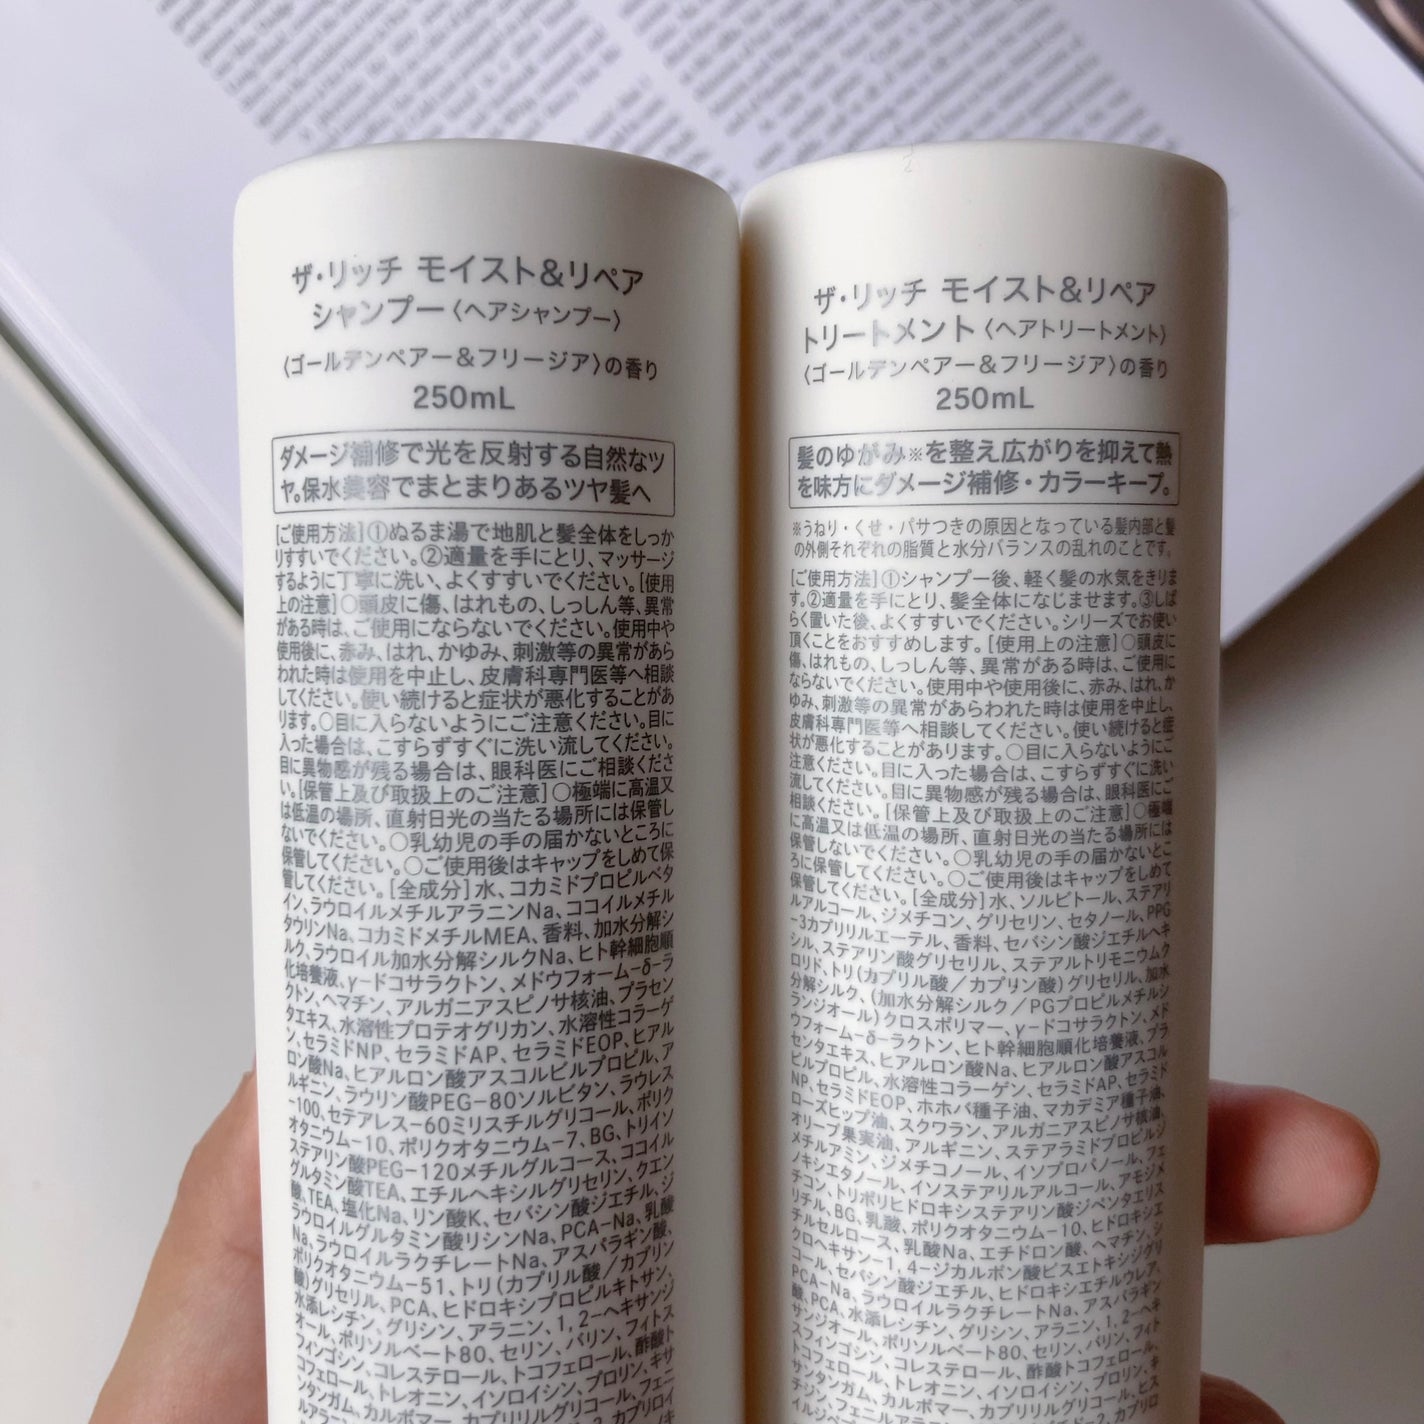 ザ・リッチ モイスト&リペア
シャンプー〈ヘアシャンプー〉
〈ゴールデンペアー&フリージア〉の香り
250mL
ダメージ補修で光を反射する自然なツ
ヤ。保水美容でまとまりあるツヤ髪へ
[ご使用方法]①ぬるま湯で地肌と髪全体をしっか
りすすいでください。②適量を手にとり、マッサージ
するように丁寧に洗い、よくすすいでください。[使用
上の注意]○頭皮に傷、はれもの、しっしん等、異常
がある時は、ご使用にならないでください。使用中や
使用後に、赤み、はれ、かゆみ、刺激等の異常があら
われた時は使用を中止し、皮膚科専門医等へ相談
してください。使い続けると症状が悪化することがあ
ります。○目に入らないようにご注意ください。目に
入った場合は、こすらずすぐに洗い流してください。
目に異物感が残る場合は、眼科医にご相談くださ
い。[保管上及び取扱上のご注意]○極端に高温又
は低温の場所、直射日光の当たる場所には保管し
ないでください。○乳幼児の手の届かないところに
保管してください。○ご使用後はキャップをしめて保
管してください。[全成分]水、コカミドプロピルベタ
イン、ラウロイルメチルアラニンNa、ココイルメチル
タウリンNa、コカミドメチルMEA、香料、加水分解シ
ルク、ラウロイル加水分解シルクNa、ヒト幹細胞順
化培養液、γ-ドコサラクトン、メドウフォーム-δ-ラ
クトン、ヘマチン、アルガニアスピノサ核油、プラセン
タエキス、水溶性プロテオグリカン、水溶性コラーゲ
ン、セラミドNP、セラミドAP、セラミドEOP、ヒアル
ロン酸Na、ヒアルロン酸アスコルビルプロピル、ア
ルギニン、ラウリン酸PEG-80ソルビタン、ラウレス
-100、セテアレス-60ミリスチルグリコール、ポリク
オタニウム-10、ポリクオタニウム-7、BG、トリイソ
ステアリン酸PEG-120メチルグルコース、ココイル
グルタミン酸TEA、エチルヘキシルグリセリン、クエン
酸、TEA、塩化Na、リン酸K、セバシン酸ジエチル、ジ
ラウロイルグルタミン酸リシンNa、PCA-Na、乳酸
Na、ラウロイルラクチレートNa、アスパラギン酸、
ポリクオタニウム-51、トリ(カプリル酸/カプリン
酸)グリセリル、PCA、ヒドロキシプロピルキトサン、
水添レシチン、グリシン、アラニン、1,2-ヘキサンジ
オール、ポリソルベート80、セリン、バリン、フィトス
フィンゴシン、コレステロール、トコフェロール、酢酸ト
コフェロール、トレオニン、イソロイシン、プロリン、キサ
ンタンガム、カルボマー、カプリリルグリコール、フェニ
ルアラニン
ザ・リッチ モイスト&リペア
トリートメント〈ヘアトリートメント〉
〈ゴールデンペアー&フリージア〉の香り
250mL
髪のゆがみ※を整え広がりを抑えて熱
を味方にダメージ補修・カラーキープ。
※うねり・くせ・パサつきの原因となっている髪内部と髪
の外側それぞれの脂質と水分バランスの乱れのことです。
[ご使用方法]①シャンプー後、軽く髪の水気をきりま
す。②適量を手にとり、髪全体になじませます。③しば
らく置いた後、よくすすいでください。シリーズでお使い
頂くことをおすすめします。[使用上の注意]○頭皮に
傷、はれもの、しっしん等、異常がある時は、ご使用に
ならないでください。使用中や使用後に、赤み、はれ、か
ゆみ、刺激等の異常があらわれた時は使用を中止し、
皮膚科専門医等へ相談してください。使い続けると症
状が悪化することがあります。○目に入らないようにご
注意ください。目に入った場合は、こすらずすぐに洗い
流してください。目に異物感が残る場合は、眼科医にご
相談ください。[保管上及び取扱上のご注意]○極端
に高温又は低温の場所、直射日光の当たる場所には
保管しないでください。○乳幼児の手の届かないとこ
ろに保管してください。○ご使用後はキャップをしめて
保管してください。[全成分]水、ソルビトール、ステアリ
ルアルコール、ジメチコン、グリセリン、セタノール、PPG
-3カプリリルエーテル、香料、セバシン酸ジエチルヘキ
シル、ステアリン酸グリセリル、ステアルトリモニウムク
ロリド、トリ(カプリル酸/カプリン酸)グリセリル、加水
分解シルク、(加水分解シルク/PGプロピルメチルシ
ランジオール)クロスポリマー、γ-ドコサラクトン、メド
ウフォーム-δ-ラクトン、ヒト幹細胞順化培養液、プラ
センタエキス、ヒアルロン酸Na、ヒアルロン酸アスコル
ビルプロピル、水溶性コラーゲン、セラミドAP、セラミド
NP、セラミドEOP、ホホバ種子油、マカデミア種子油、
ローズヒップ油、スクワラン、アルガニアスピノサ核油、
オリーブ果実油、アルギニン、ステアラミドプロピルジ
メチルアミン、ジメチコノール、イソプロパノール、フェ
ノキシエタノール、イソステアリルアルコール、アモジメ
チコン、トリポリヒドロキシステアリン酸ジペンタエリス
リチル、BG、乳酸、ポリクオタニウム-10、ヒドロキシエ
チルセルロース、乳酸Na、エチドロン酸、ヘマチン、シ
クロヘキサン-1,4-ジカルボン酸ビスエトキシジグリ
コール、セバシン酸ジエチル、ヒドロキシエチルウレア、
PCA-Na、ラウロイルラクチレートNa、アスパラギン
酸、PCA、水添レシチン、グリシン、アラニン、1,2-ヘキ
サンジオール、ポリソルベート80、セリン、バリン、フィト
スフィンゴシン、コレステロール、酢酸トコフェロール、
トコフェロール、トレオニン、イソロイシン、プロリン、キ
サンタンガム、カルボマー、カプリリルグリコール、ヒス
チジン、フェニルアラニン